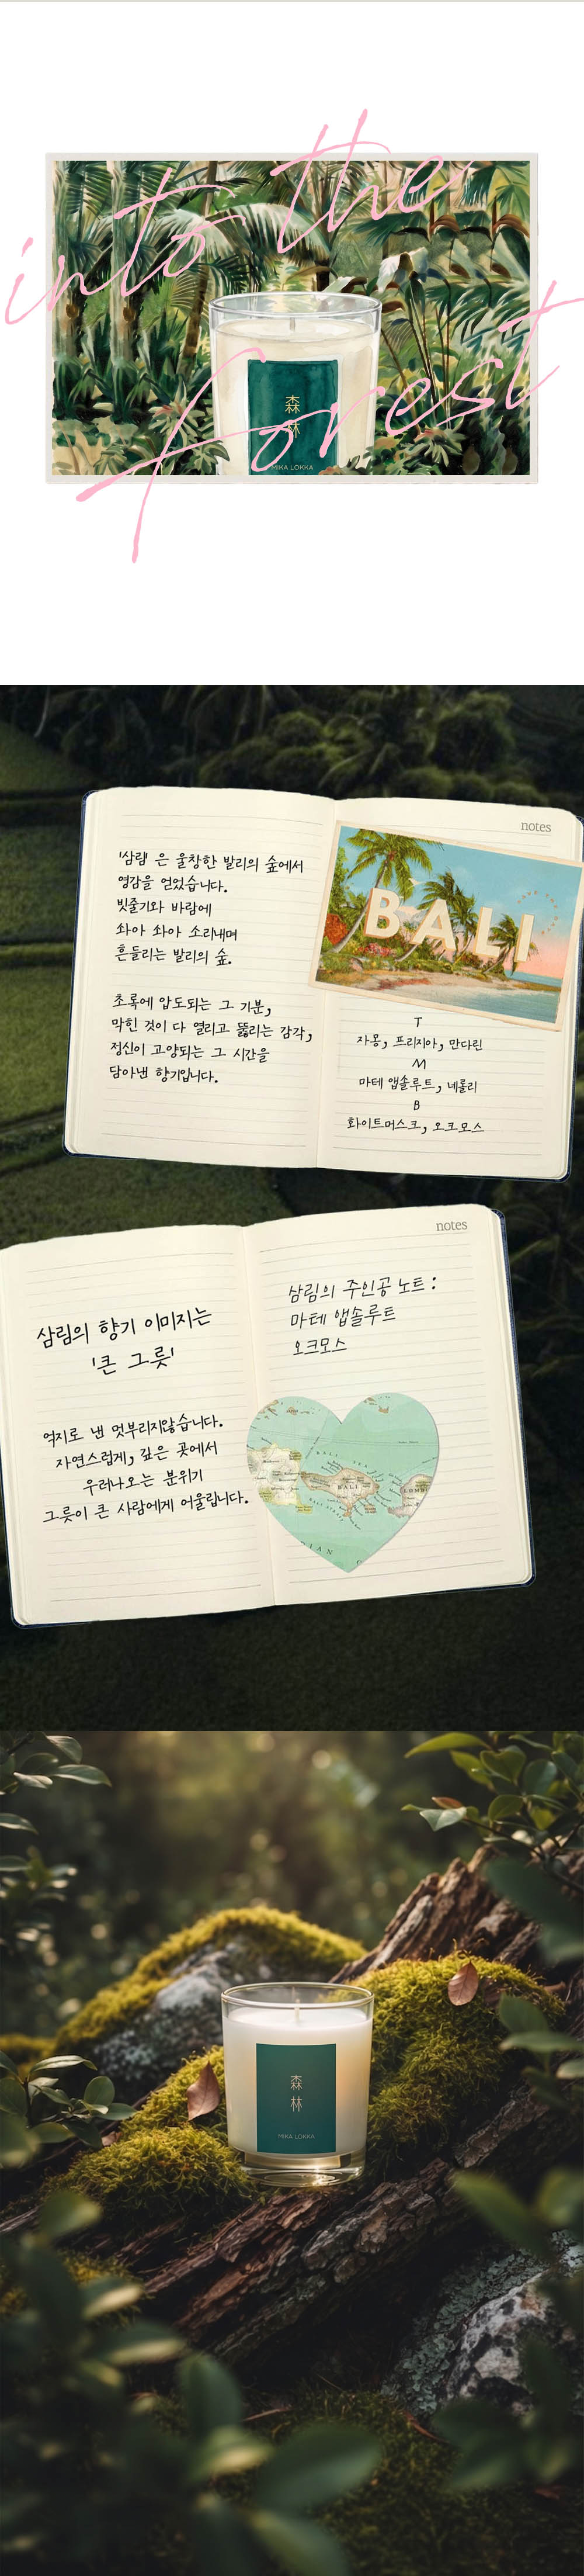 into the
forest
森
林
MIKA LOKKA
notes
'삼림' 은 울창한 발리의 숲에서
영감을 얻었습니다.
빗줄기와 바람에
솨아 솨아 소리내며
흔들리는 발리의 숲.
초록에 압도되는 그 기분,
막힌 것이 다 열리고 뚫리는 감각,
정신이 고양되는 그 시간을
담아낸 향기입니다.
BALI
T
자몽, 프리지아, 만다린
M
마테 앱솔루트, 네롤리
B
화이트머스크, 오크모스
notes
삼림의 향기 이미지는
'큰 그릇'
억지로 낸 멋부리지않습니다.
자연스럽게, 깊은 곳에서
우러나오는 분위기
그릇이 큰 사람에게 어울립니다.
삼림의 주인공 노트 :
마테 앱솔루트
오크모스
BALI SEA
BALI
LOMB
森
林
MIKA LOKKA